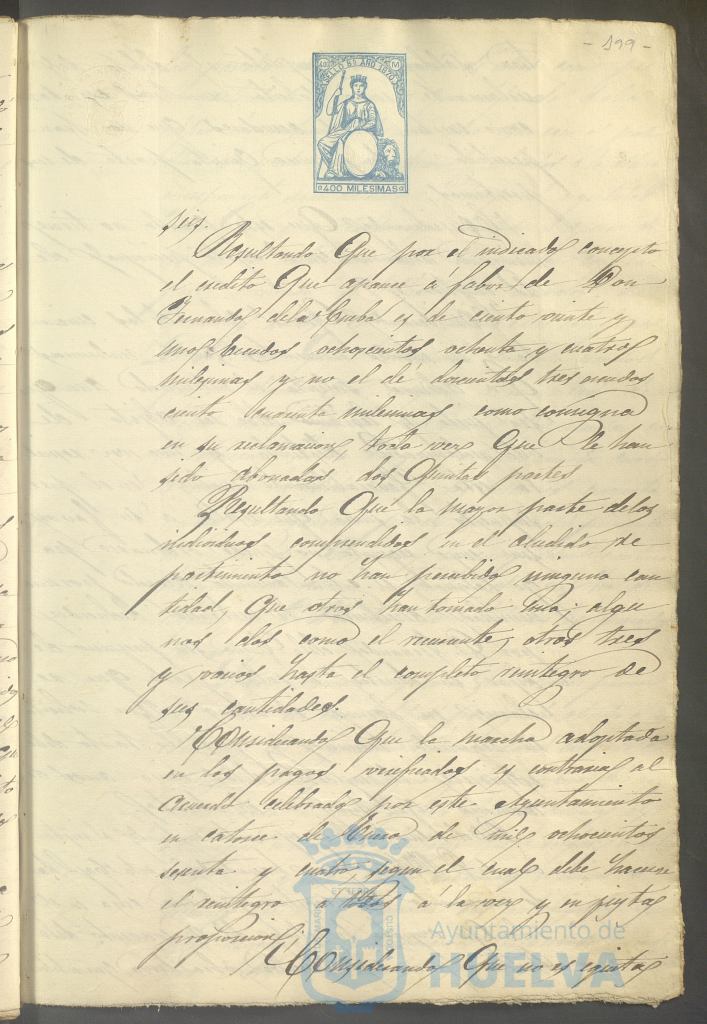 - 199 -
SELLO 5º AÑO 1870
400 MILESIMAS
seis.
Resultando Que por el indicado concepto
el credito Que aparece á fabor de Don
Fernando de la Cueba es de ciento veinte y
uno Escudos ochocientos ochenta y cuatro
milesimas y no el de doscientos tres escudos
ciento cuarenta milesimas como consigna
en su reclamacion toda vez Que le han
sido abonadas dos Quintas partes
Resultando Que la mayor parte de los
individuos comprendidos en el aludido re
partimiento no han percibido ninguna can
tidad, Que otros han tomado una; algu
nos dos como el recurrente, otros tres
y varios hasta el completo reintegro de
sus cantidades.
Considerando Que la marcha adoptada
en los pagos verificados es contraria al
acuerdo celebrado por este Ayuntamiento
en catorce de Enero de mil ochocientos
sesenta y cuatro, segun el cual debe hacerse
el reintegro a todos á la vez y en justa
proporcion
Considerando Que no es
Ayuntamiento de
HUELVA